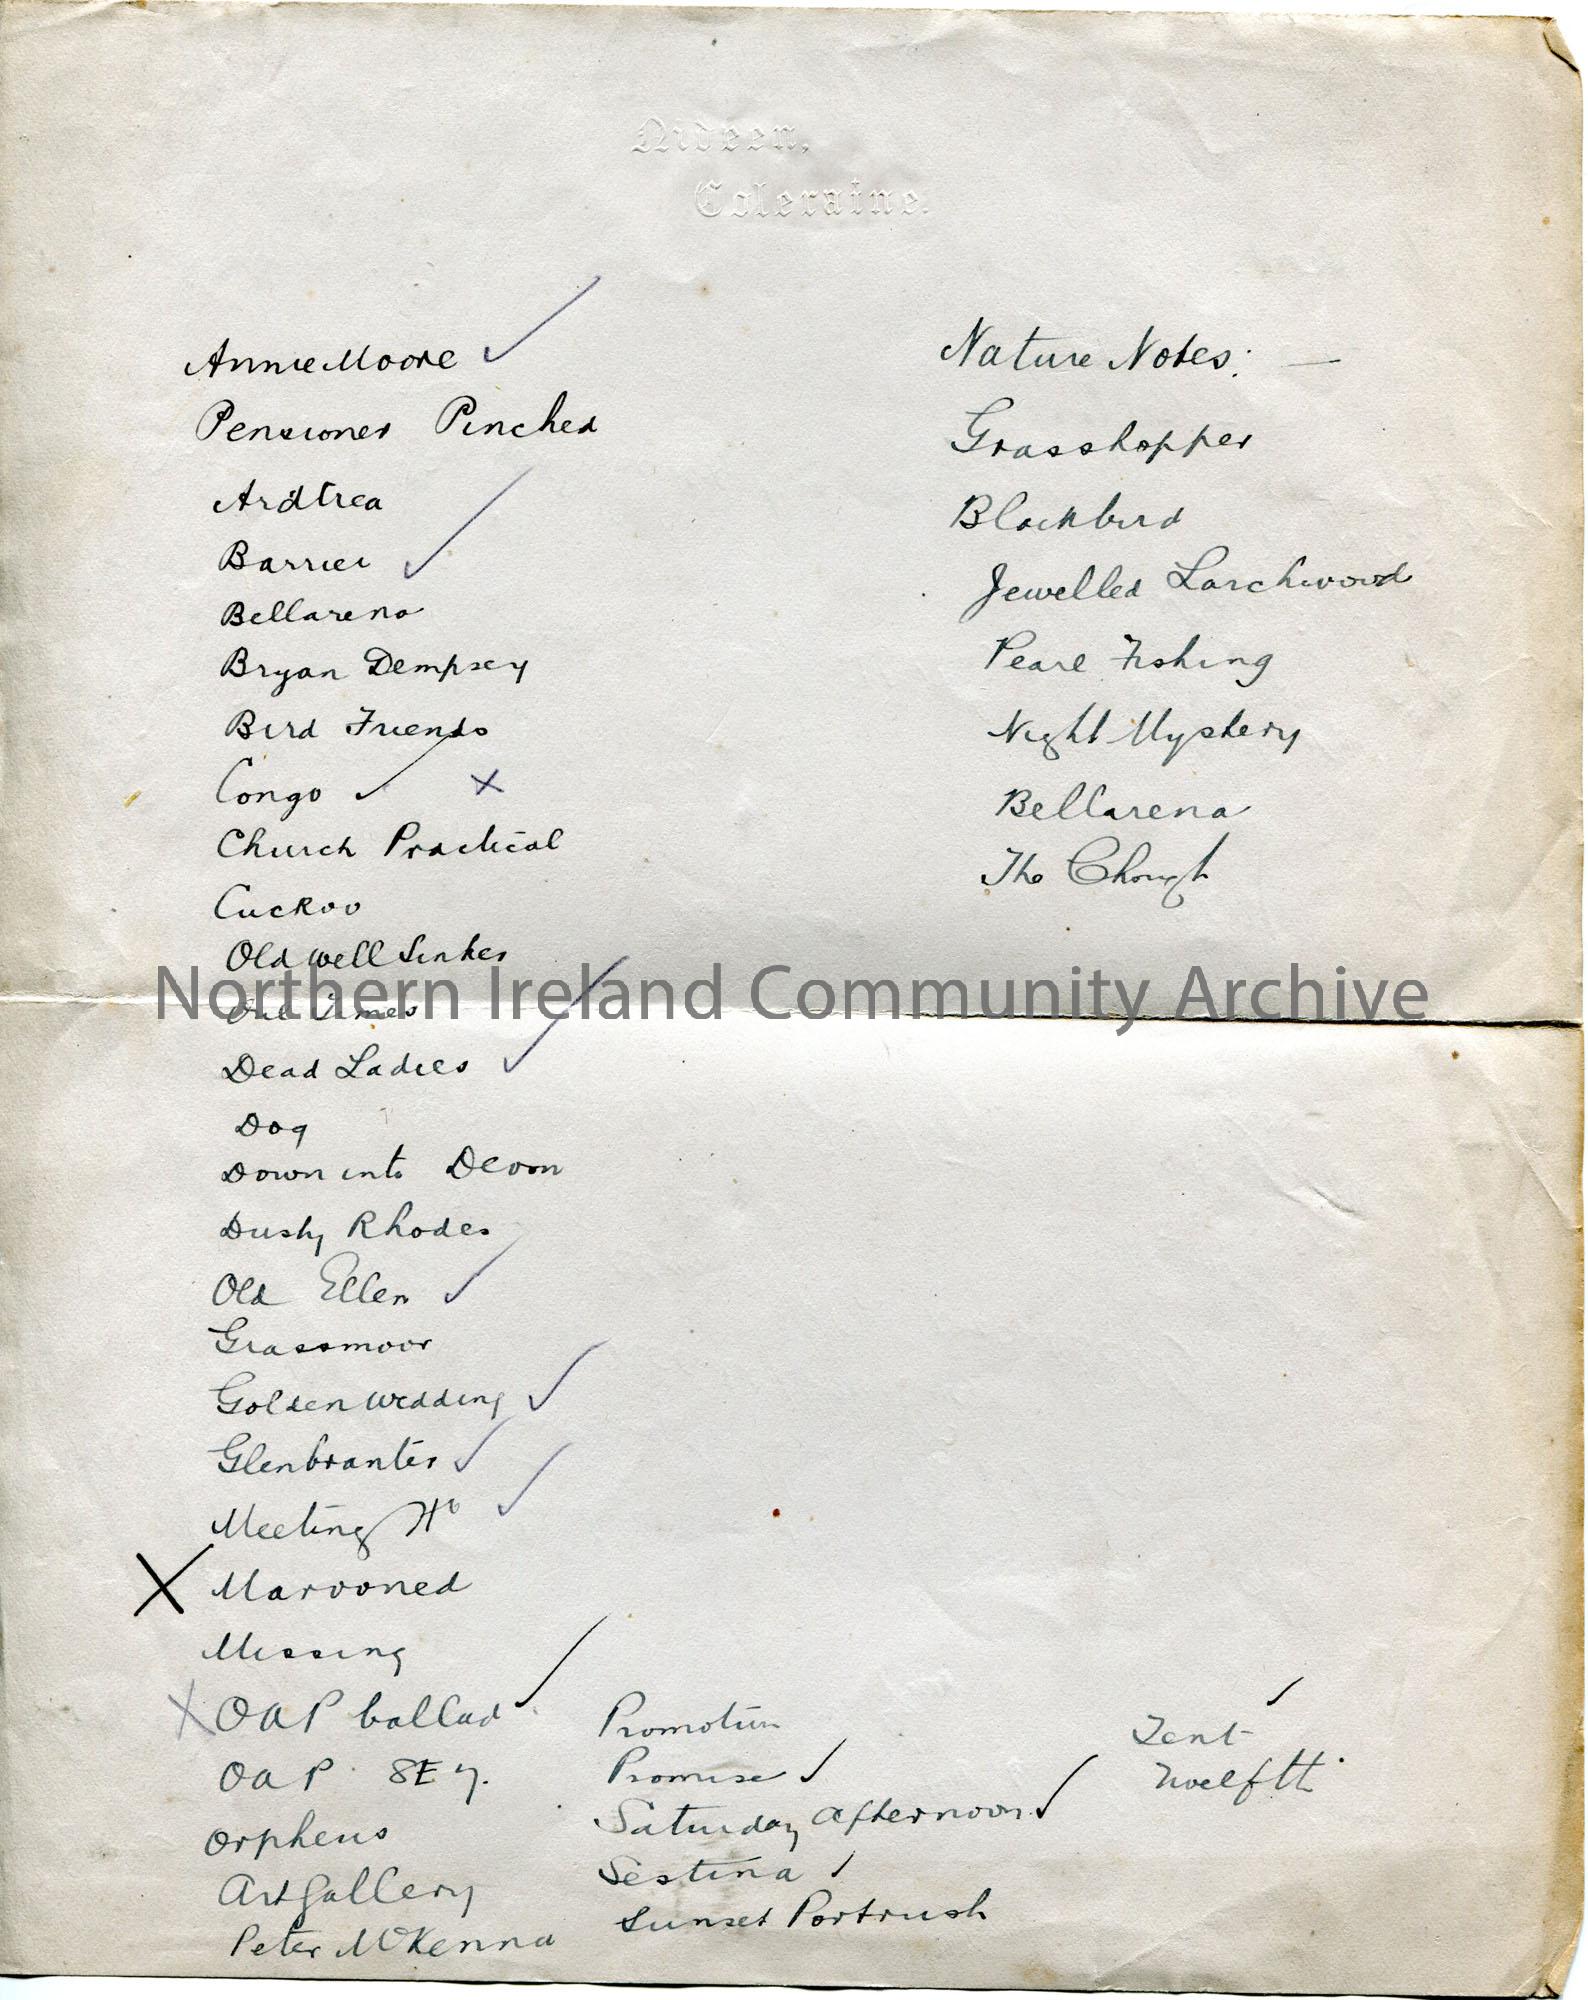 Nideen,
Coleraine.
Annie Moore ✓
Pensioner Pinched
Ardtrea
Barrier ✓
Bellarena
Bryan Dempsey
Bird Friends
Congo ✓ X
Church Practical
Cuckoo
Old well Sinker
Times
Dead Ladies ✓
Dog
Down into Devon
Dusty Rhodes
Old Ellen ✓
Grassmoor
Golden Wedding ✓
Glenbranter ✓
Meeting Ho ✓
X Marooned
Missing
X OAP ballad ✓
OAP
Orpheus
Art Gallery
Peter McKenna
Promotion
Promise ✓
Saturday Afternoon ✓
Sestina ✓
Sunset Portrush
Tent ✓
Twelfth
Nature Notes: —
Grasshopper
Blackbird
Jewelled Larchwood
Pearl Fishing
Night Mystery
Bellarena
The Chough
Northern Ireland Community Archive